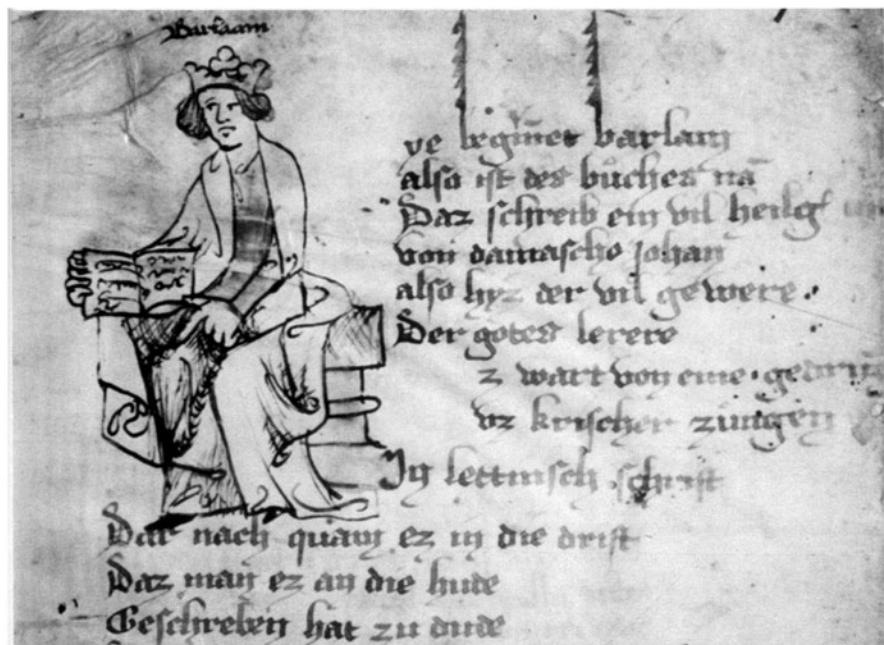 Barlaam
ye begin̄et barlam
also ist des bůches nā
Daz schreib ein vil heilg'
von damascho johan
also hyz der vil gewere.
Der gotes lerere
z wart von eine
vz krischer zungen
In lettinsch schrift
Dar nach quam ez in die drift
Daz man ez an die hute
Geschreben hat zu dude